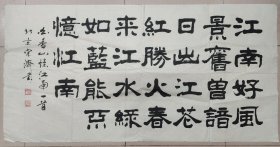 江南好風
景舊曾諳
日出江花
紅勝火春
來江水綠
如藍能不
憶江南
香山憶江南一首
書